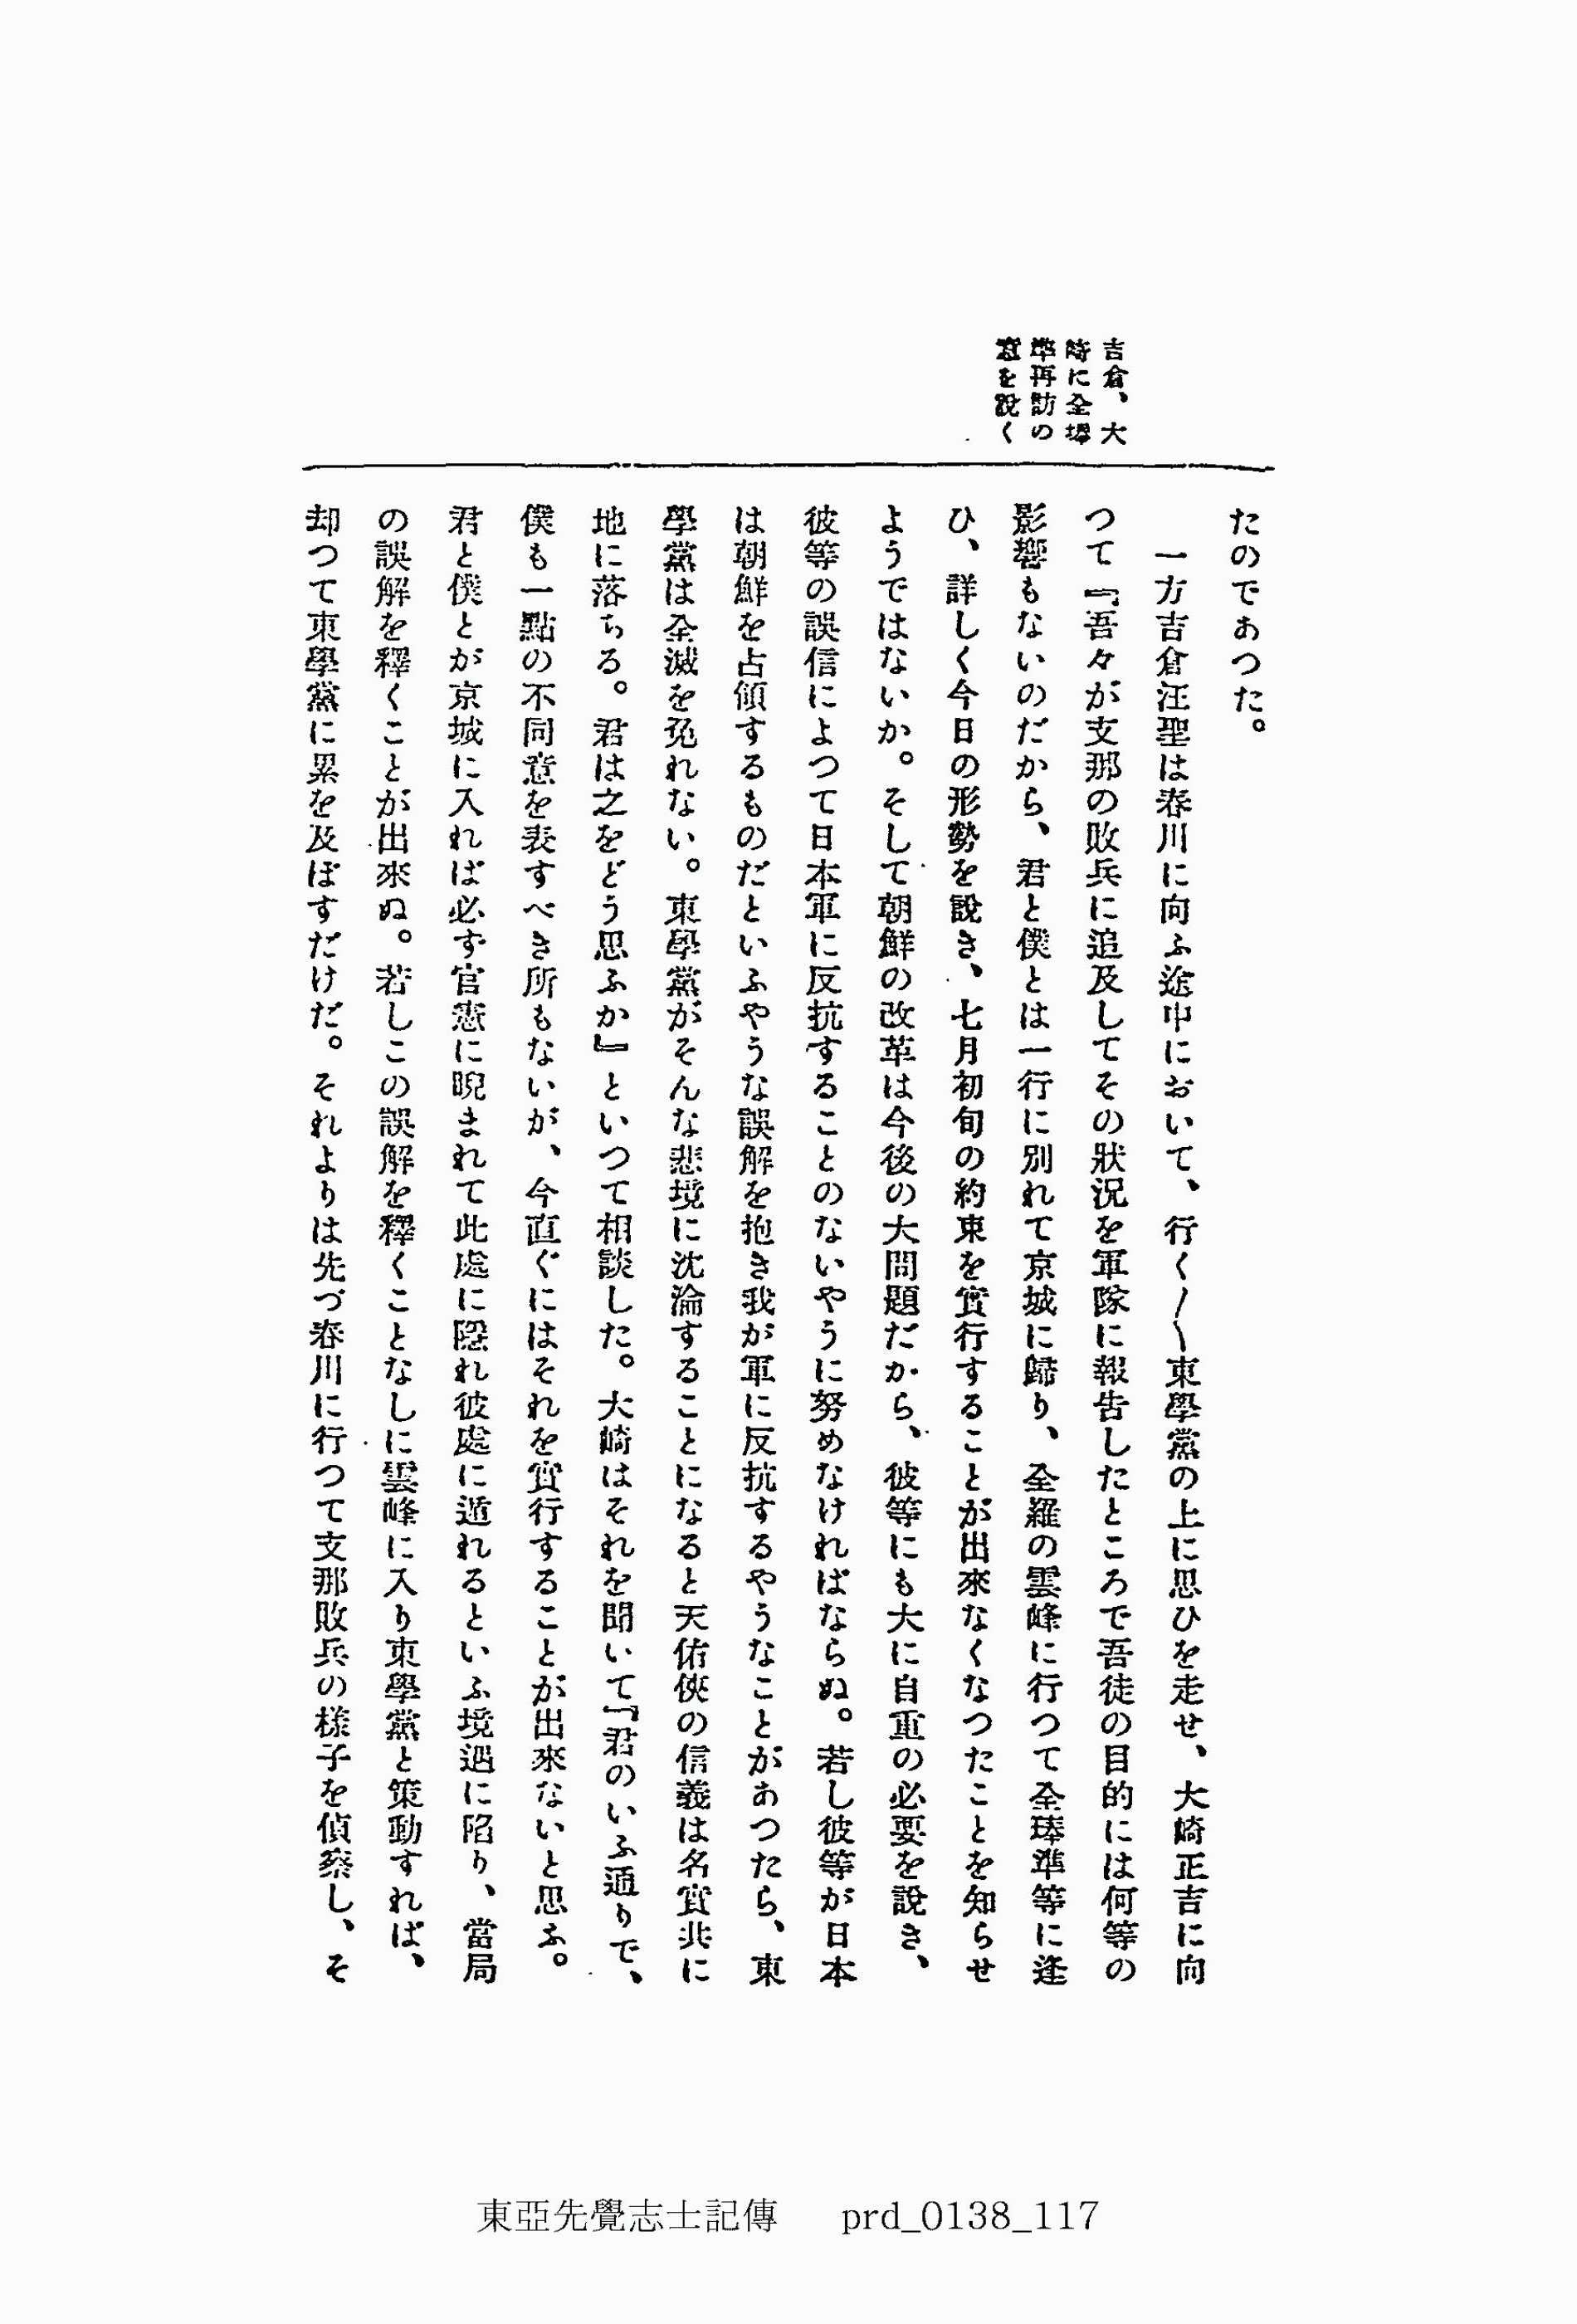 吉倉、大
時に全琫
準再訪の
意を説く
たのであつた。
一方吉倉汪聖は春川に向ふ途中において、行く〳〵東學黨の上に思ひを走せ、大崎正吉に向
つて『吾々が支那の敗兵に追及してその狀況を軍隊に報告したところで吾徒の目的には何等の
影響もないのだから、君と僕とは一行に別れて京城に歸り、全羅の雲峰に行つて全琫準等に逢
ひ、詳しく今日の形勢を說き、七月初旬の約束を實行することが出來なくなつたことを知らせ
ようではないか。そして朝鮮の改革は今後の大問題だから、彼等にも大に自重の必要を說き、
彼等の誤信によつて日本軍に反抗することのないやうに努めなければならぬ。若し彼等が日本
は朝鮮を占領するものだといふやうな誤解を抱き我が軍に反抗するやうなことがあつたら、東
學黨は全滅を免れない。東學黨がそんな悲境に沈淪することになると天佑俠の信義は名實共に
地に落ちる。君は之をどう思ふか』といつて相談した。大崎はそれを聞いて『君のいふ通りで、
僕も一點の不同意を表すべき所もないが、今直ぐにはそれを實行することが出來ないと思ふ。
君と僕とが京城に入れば必ず官憲に睨まれて此處に隱れ彼處に遁れるといふ境遇に陷り、當局
の誤解を釋くことが出來ぬ。若しこの誤解を釋くことなしに雲峰に入り東學黨と策動すれば、
却つて東學黨に累を及ぼすだけだ。それよりは先づ春川に行つて支那敗兵の樣子を偵察し、そ
東亞先覺志士記傳 prd_0138_117